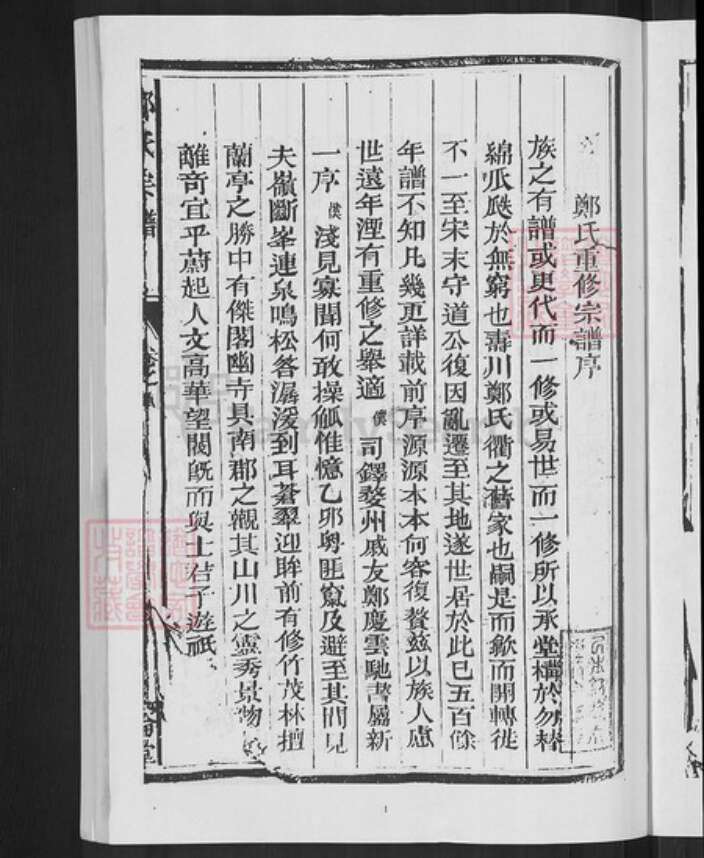 鄭氏重修宗譜序
族之有譜或更代而一修或易世而一修所以承堂構於勿替
綿瓜瓞於無窮也壽川鄭氏衢之舊家也嗣是而歙而開轉徙
不一至宋末守道公復因亂遷至其地遂世居於此已五百餘
年譜不知凡幾更詳載前序源源本本何容復贅茲以族人慮
世遠年湮有重修之舉適僕司鐸婺州戚友鄭慶雲馳書屬新
一序僕淺見寡聞何敢操觚惟憶乙卯粵匪竄及避至其間見
夫嶺斷峯連泉鳴松答潺湲到耳蒼翠迎眸前有修竹茂林擅
蘭亭之勝中有傑閣幽寺具南郡之觀其山川之靈秀景物
離奇宜乎蔚起人文高華望閥既而與士君子遊祇
氏宗譜
1